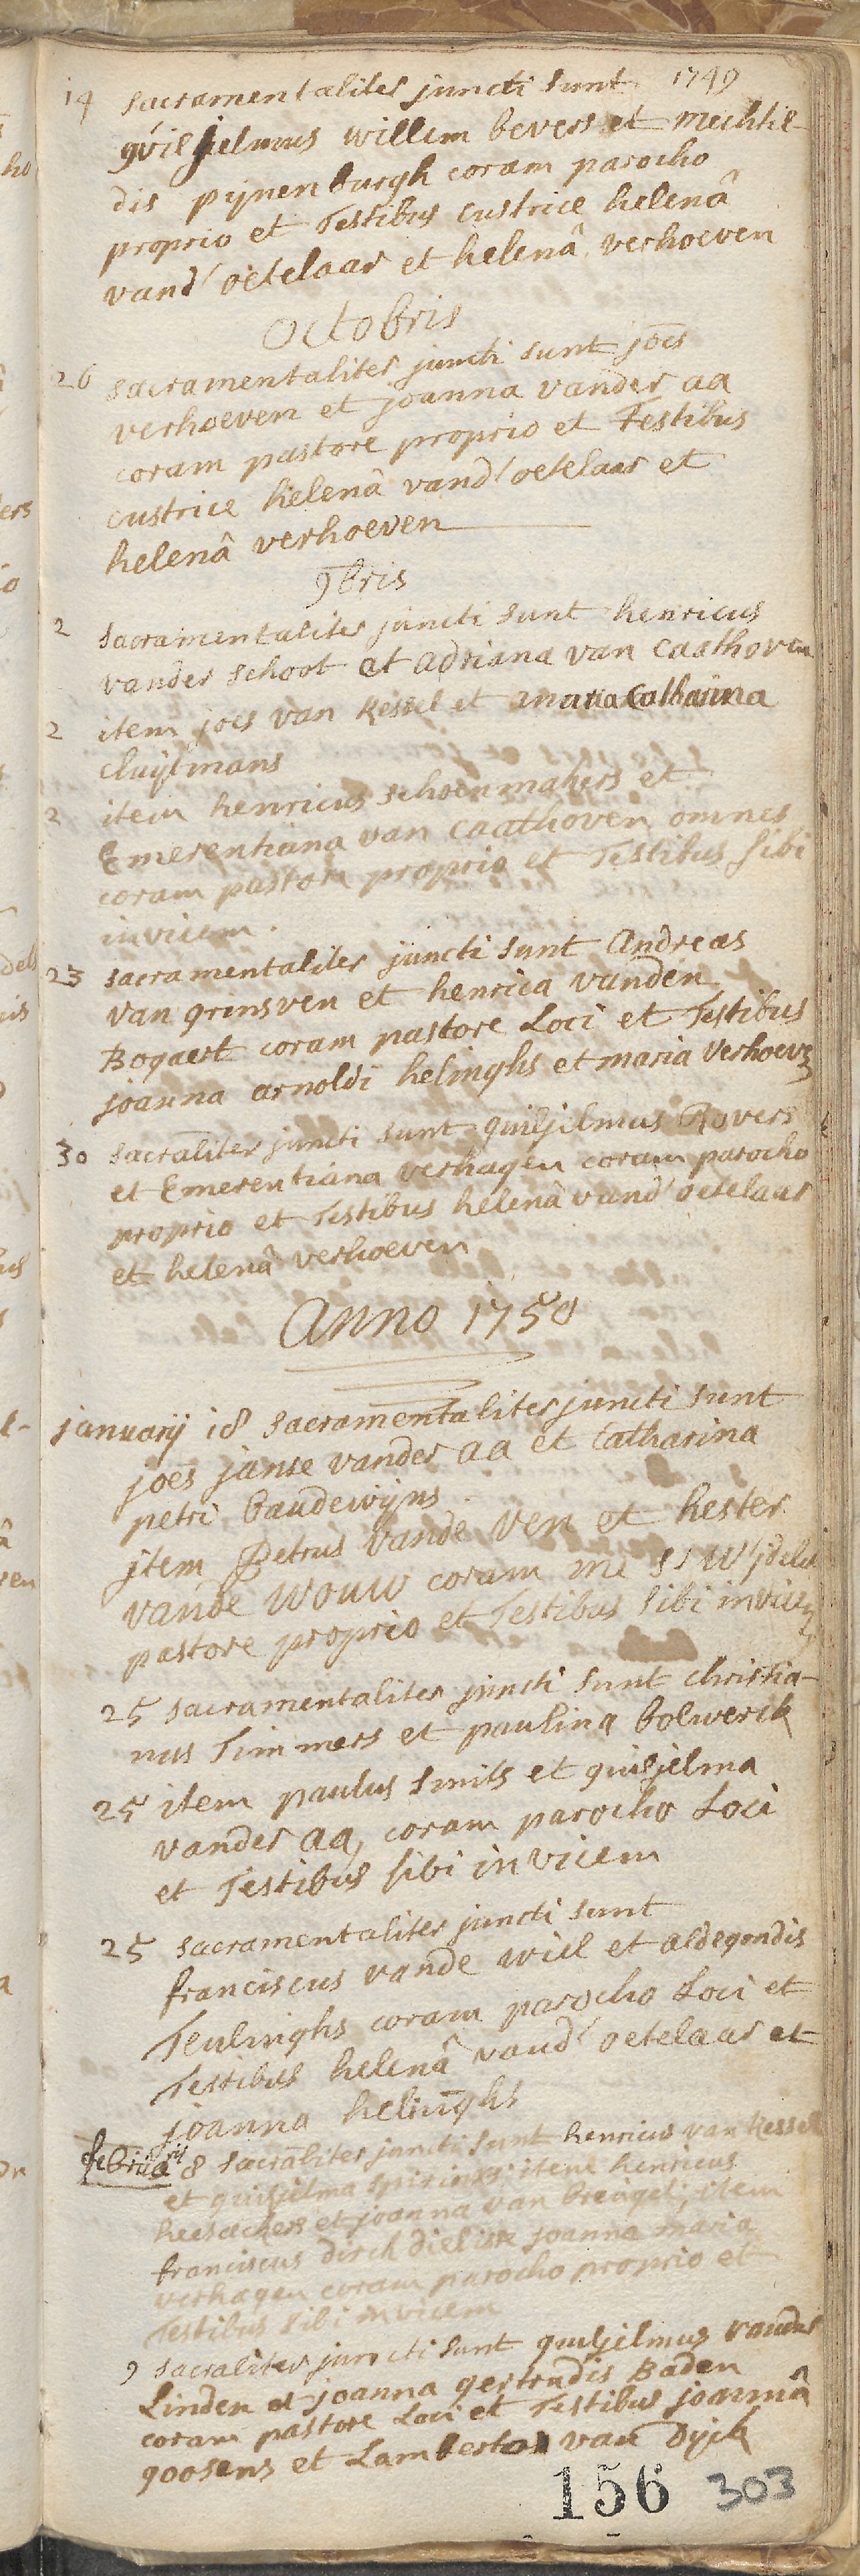 1749
14 sacramentaliter juncti sunt
guiljelmus willem bevers et mechtil-
dis pijnenburgh coram parocho
proprio et Testibus custrice helenâ
vand' oetelaar et helenâ verhoeven
Octobris
26 sacramentaliter juncti sunt joēs
verhoeven et joanna vander aa
coram pastore proprio et Testibus
custrice helenâ vand' oetelaar et
helenâ verhoeven
9bris
2 sacramentaliter juncti sunt henricus
vander schoot et adriana van Caathoven
2 item joes van kessel et maria Catharina
cluijtmans
2 item henricus schoenmakers et
Emerentiana van Caathoven omnes
coram pastore proprio et Testibus sibi
invicem.
23 sacramentaliter juncti sunt Andreas
van grinsven et henrica vanden
Bogaert coram pastore Loci et Testibus
joanna arnoldi helinghs et maria verhoeven
30 sacraliter juncti sunt guiljelmus Rovers
et Emerentiana verhagen coram parocho
proprio et Testibus helenâ vand' oetelaar
et helenâ verhoeven
Anno 1750
januarij 18 sacramentaliter juncti sunt
joēs janse vander aa et Catharina
petri baudewijns.
jtem Petrus vande ven et hester
vande Wouw coram me
pastore proprio et Testibus sibi invicem
25 sacramentaliter juncti sunt christia-
nus Timmers et paulina bolwerck
25 item paulus smits et guiljelma
vander aa, coram parocho Loci
et Testibus sibi invicem
25 sacramentaliter juncti sunt
franciscus vande wiel et aldegondis
Teulinghs coram parocho Loci et
Testibus helenâ vand' oetelaar et
joanna helinghs
februarij 8 sacraliter juncti sunt henricus van kessel
et guiljelma spirinx item henricus
heesackers et joanna van breugel, item
franciscus dirck dielisse joanna maria
verhagen coram parocho proprio et
Testibus sibi invicem
9 sacraliter juncti sunt guiljelmus vander
Linden et joanna gertrudis Baden
coram pastore Loci et Testibus joannâ
goosens et Lamberto van Dijck
156 303